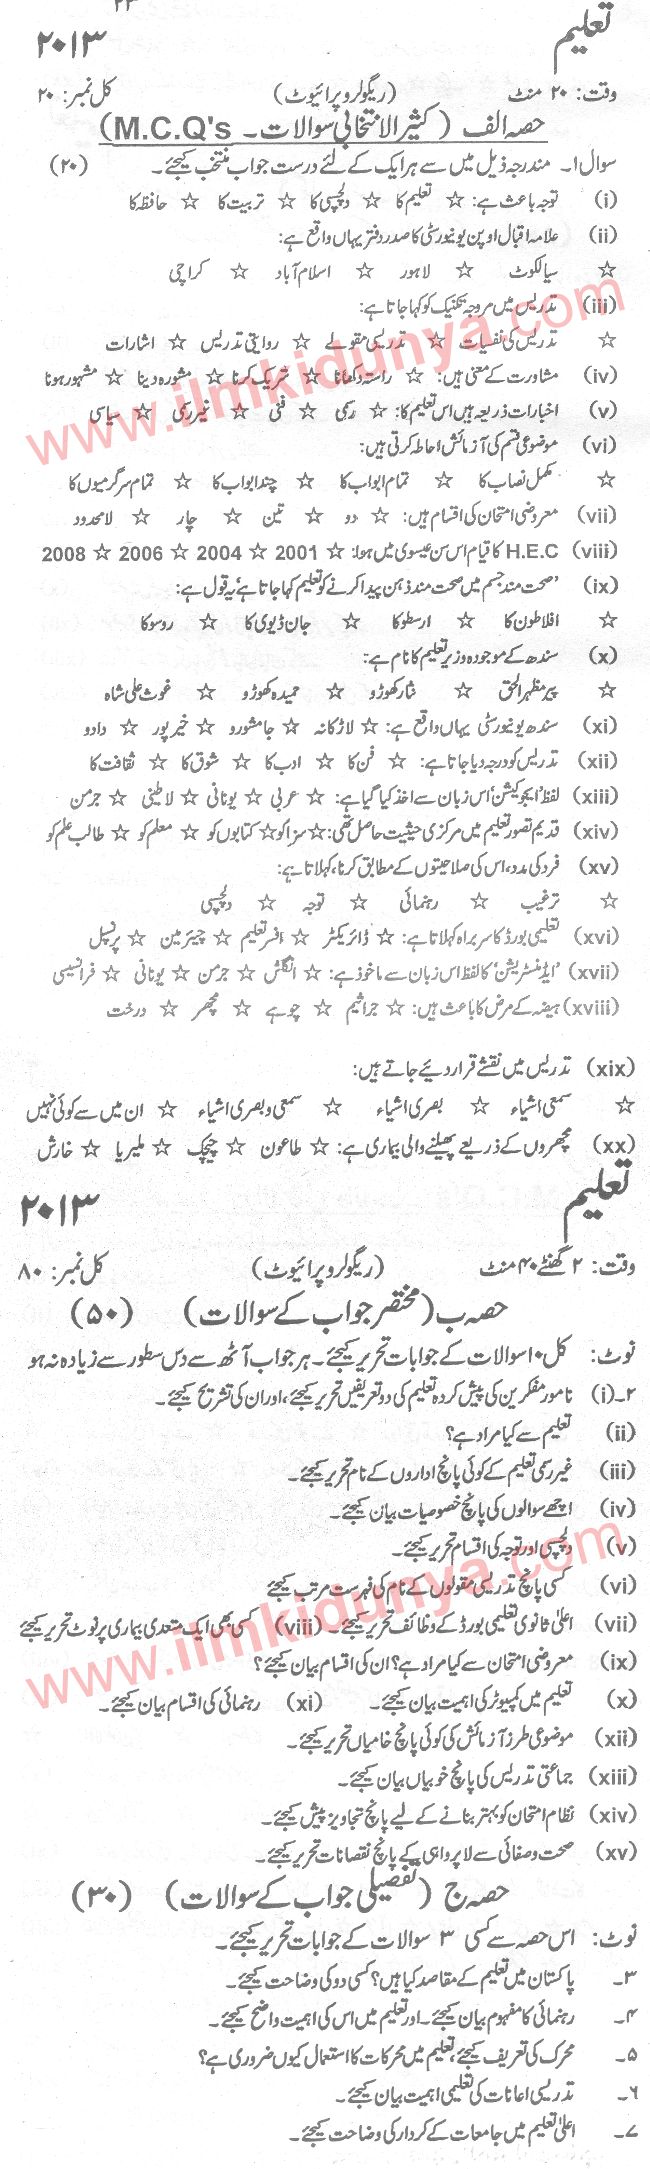 ۲۳
تعلیم ۲۰۱۳
وقت: ۲۰ منٹ (ریگولر و پرائیوٹ) کل نمبر: ۲۰
حصہ الف (کثیر الانتخابی سوالات۔ M.C.Q's)
سوال۱۔ مندرجہ ذیل میں سے ہر ایک کے لئے درست جواب منتخب کیجئے۔ (۲۰)
(i) توجہ باعث ہے: ☆ تعلیم کا ☆ دلچسپی کا ☆ تربیت کا ☆ حافظہ کا
(ii) علامہ اقبال اوپن یونیورسٹی کا صدر دفتر یہاں واقع ہے:
☆ سیالکوٹ ☆ لاہور ☆ اسلام آباد ☆ کراچی
(iii) تدریس میں مروجہ تکنیک کو کہا جاتا ہے:
☆ تدریس کی نفسیات ☆ تدریسی مقولے ☆ روایتی تدریس ☆ اشارات
(iv) مشاورت کے معنی ہیں: ☆ راستہ دکھانا ☆ شریک کرنا ☆ مشورہ دینا ☆ مشہور ہونا
(v) اخبارات ذریعہ ہیں اس تعلیم کا: ☆ رسمی ☆ فنی ☆ غیر رسمی ☆ سیاسی
(vi) موضوعی قسم کی آزمائش احاطہ کرتی ہیں:
☆ مکمل نصاب کا ☆ تمام ابواب کا ☆ چند ابواب کا ☆ تمام سرگرمیوں کا
(vii) معروضی امتحان کی اقسام ہیں: ☆ دو ☆ تین ☆ چار ☆ لامحدود
(viii) H.E.C کا قیام اس سن عیسوی میں ہوا: ☆ 2001 ☆ 2004 ☆ 2006 ☆ 2008
(ix) 'صحت مند جسم میں صحت مند ذہن پیدا کرنے کو تعلیم کہا جاتا ہے' یہ قول ہے:
☆ افلاطون کا ☆ ارسطو کا ☆ جان ڈیوی کا ☆ روسو کا
(x) سندھ کے موجودہ وزیر تعلیم کا نام ہے:
☆ پیر مظہر الحق ☆ نثار کھوڑو ☆ حمیدہ کھوڑو ☆ غوث علی شاہ
(xi) سندھ یونیورسٹی یہاں واقع ہے: ☆ لاڑکانہ ☆ جامشورو ☆ خیر پور ☆ دادو
(xii) تدریس کو درجہ دیا جاتا ہے: ☆ فن کا ☆ ادب کا ☆ شوق کا ☆ ثقافت کا
(xiii) لفظ 'ایجوکیشن' اس زبان سے اخذ کیا گیا ہے: ☆ عربی ☆ یونانی ☆ لاطینی ☆ جرمن
(xiv) قدیم تصور تعلیم میں مرکزی حیثیت حاصل تھی: ☆ سزا کو ☆ کتابوں کو ☆ معلم کو ☆ طالب علم کو
(xv) فرد کی مدد، اس کی صلاحیتوں کے مطابق کرنا، کہلاتا ہے:
☆ ترغیب ☆ رہنمائی ☆ توجہ ☆ دلچسپی
(xvi) تعلیمی بورڈ کا سربراہ کہلاتا ہے: ☆ ڈائریکٹر ☆ افسر تعلیم ☆ چیئرمین ☆ پرنسپل
(xvii) 'ایڈمنسٹریشن' کا لفظ اس زبان سے ماخوذ ہے: ☆ انگلش ☆ جرمن ☆ یونانی ☆ فرانسیسی
(xviii) ہیضہ کے مرض کا باعث ہیں: ☆ جراثیم ☆ چوہے ☆ مچھر ☆ درخت
(xix) تدریس میں نقشے قرار دیئے جاتے ہیں:
☆ سمعی اشیاء ☆ بصری اشیاء ☆ سمعی و بصری اشیاء ☆ ان میں سے کوئی نہیں
(xx) مچھروں کے ذریعے پھیلنے والی بیماری ہے: ☆ طاعون ☆ چیچک ☆ ملیریا ☆ خارش
تعلیم ۲۰۱۳
وقت: ۲ گھنٹے ۴۰ منٹ (ریگولر و پرائیوٹ) کل نمبر: ۸۰
حصہ ب (مختصر جواب کے سوالات) (۵۰)
نوٹ: کل ۱۰ سوالات کے جوابات تحریر کیجئے۔ ہر جواب آٹھ سے دس سطور سے زیادہ نہ ہو
۲۔(i) نامور مفکرین کی پیش کردہ تعلیم کی دو تعریفیں تحریر کیجئے، اور ان کی تشریح کیجئے۔
(ii) تعلیم سے کیا مراد ہے؟
(iii) غیر رسمی تعلیم کے کوئی پانچ اداروں کے نام تحریر کیجئے۔
(iv) اچھے سوالوں کی پانچ خصوصیات بیان کیجئے۔
(v) دلچسپی اور توجہ کی اقسام تحریر کیجئے۔
(vi) کسی پانچ تدریسی مقولوں کے نام کی فہرست مرتب کیجئے
(vii) اعلیٰ ثانوی تعلیمی بورڈ کے وظائف تحریر کیجئے۔ (viii) کسی بھی ایک متعدی بیماری پر نوٹ تحریر کیجئے
(ix) معروضی امتحان سے کیا مراد ہے؟ ان کی اقسام بیان کیجئے؟
(x) تعلیم میں کمپیوٹر کی اہمیت بیان کیجئے۔ (xi) رہنمائی کی اقسام بیان کیجئے۔
(xii) موضوعی طرز آزمائش کی کوئی پانچ خامیاں تحریر کیجئے۔
(xiii) جماعتی تدریس کی پانچ خوبیاں بیان کیجئے۔
(xiv) نظام امتحان کو بہتر بنانے کے لیے پانچ تجاویز پیش کیجئے۔
(xv) صحت و صفائی سے لا پرواہی کے پانچ نقصانات تحریر کیجئے۔
حصہ ج (تفصیلی جواب کے سوالات) (۳۰)
نوٹ: اس حصہ سے کسی ۳ سوالات کے جوابات تحریر کیجئے۔
۳۔ پاکستان میں تعلیم کے مقاصد کیا ہیں؟ کسی دو کی وضاحت کیجئے۔
۴۔ رہنمائی کا مفہوم بیان کیجئے۔ اور تعلیم میں اس کی اہمیت واضح کیجئے۔
۵۔ محرک کی تعریف کیجئے، تعلیم میں محرکات کا استعمال کیوں ضروری ہے؟
۶۔ تدریسی اعانات کی تعلیمی اہمیت بیان کیجئے۔
۷۔ اعلیٰ تعلیم میں جامعات کے کردار کی وضاحت کیجئے۔
www.ilmkidunya.com
www.ilmkidunya.com